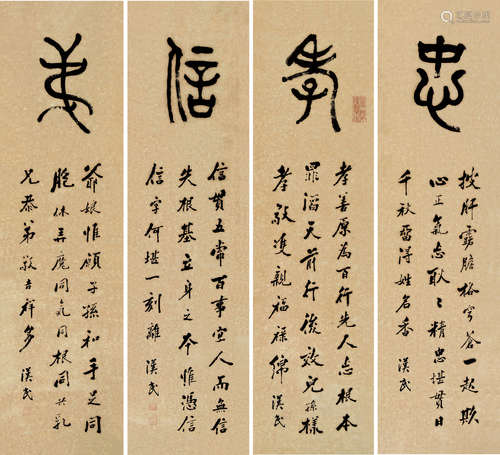 忠
披肝露膽格穹蒼一起欺
心正氣忘耿々精忠堪貫日
千秋留得姓名香 漢民
孝
孝善原為百行先人忘根本
罪滔天前行後效兒孫樣
孝敬雙親福祿綿 漢民
信
信貫五常百事宜人而無信
失根基立身之本惟憑信
信字何堪一刻離 漢民
弟
爺娘惟願子孫和手足同
胞休弄魔同氣同根同共乳
兄恭弟敬吉祥多 漢民